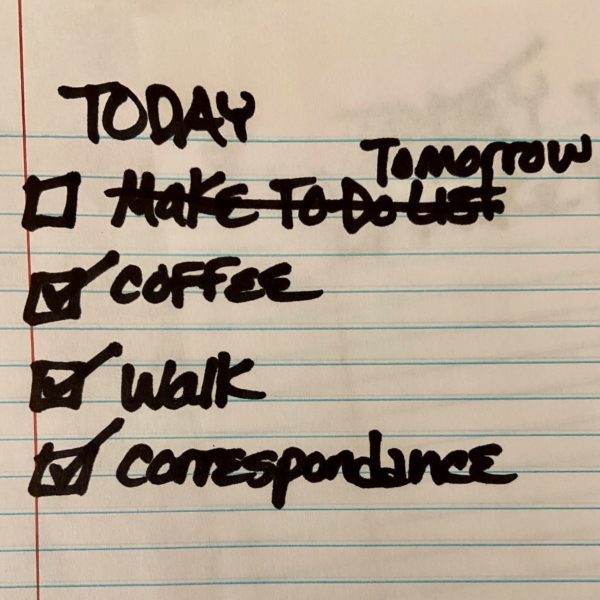 TODAY
Tomorrow
Make To Do List
Coffee
Walk
Correspondance